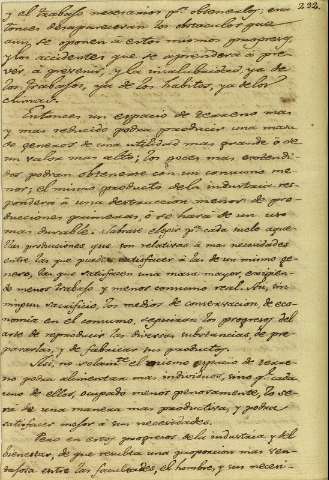 232.
y el trabajo necesarios pa. obtenerlos; en-
tonces desaparecerán los obstaculos que
aun se oponen á estos mismos progresos,
y los accidentes que se aprenderá á pre-
ver, á prevenir, y la insalubridad, ya de
los trabajos, ya de los habitos, ya de los
climas.
Entonces un espacio de terreno mas
y mas reducido podra producir una masa
de generos de una utilidad mas grande ó de
un valor mas alto; los goces mas extendi-
dos podran obtenerse con un consumo me-
nor; el mismo producto de la industria res-
pondera á una destruccion menor de pro-
ducciones primeras, ó se hará de un uso
mas durable. Sabrase elegir pa. cada suelo aque-
llas producciones que son relativas á mas necesidades
entre las que puedan satisfacer á las de un mismo ge-
nero, las que satisfacen una masa mayor, exigien-
do menos trabajo y menos consumo real. Asi, sin
ningun sacrificio, los medios de conservacion, de eco-
nomia en el consumo, seguiran los progresos del
arte de reproducir las diversas substancias, de pre-
pararlas, y de fabricar sus productos.
Asi, no solamte. el mismo espacio de terre-
no podra alimentar mas individuos, sino qe. cada
uno de ellos, ocupado menos penosamente, lo se-
rá de una manera mas productiva, y podra
satisfacer mejor á sus necesidades.
Pero en estos progresos de la industria y del
bienestar, de que resulta una proporcion mas ven-
tajosa entre las facultades, el hombre, y sus neces-